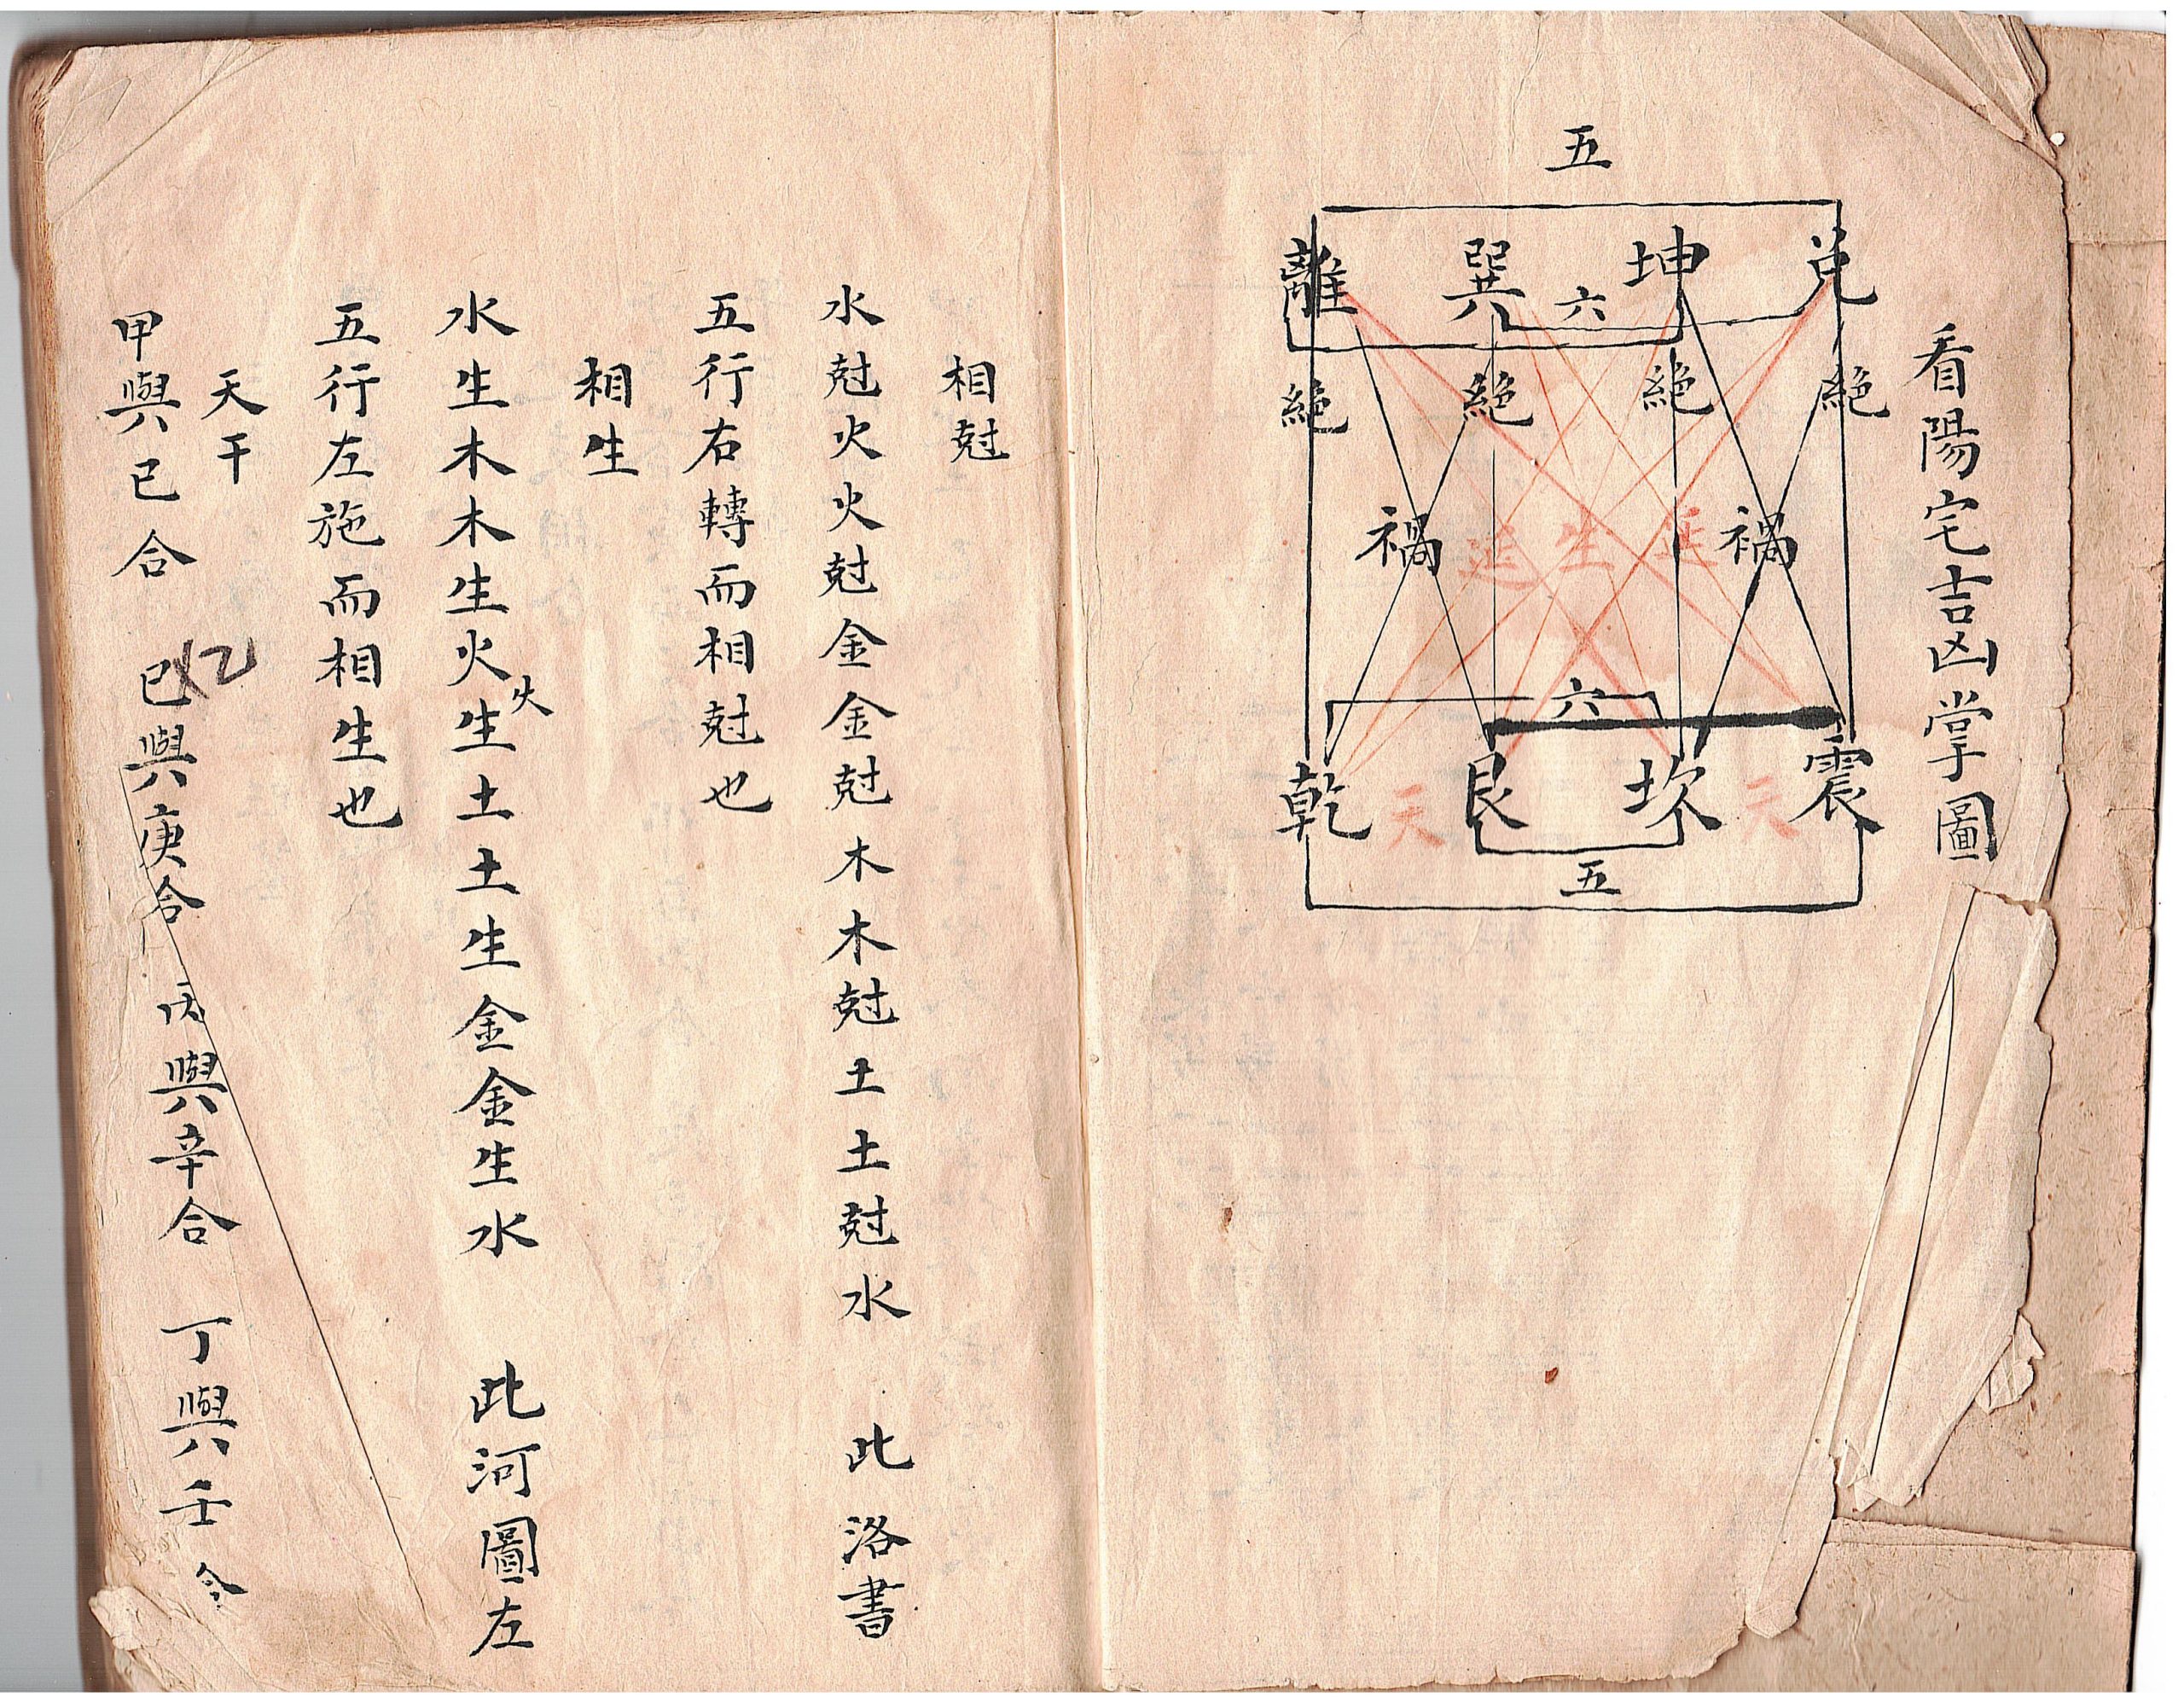 看陽宅吉凶掌圖
五
離 巽 坤 兑
六
絕 絕 絕 絕
禍 延 生 延 禍
六
乾 天 艮 坎 天 震
五
相尅
水尅火火尅金金尅木木尅土土尅水 此洛書
五行右轉而相尅也
相生
水生木木生火火生土土生金金生水 此河圖左
五行左施而相生也
天干
甲與己合 巳乙與庚合 丙與辛合 丁與壬合